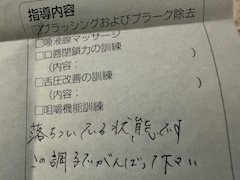 指導内容
ブラッシングおよびプラーク除去
□唾液腺マッサージ
□口唇閉鎖力の訓練
(内容: )
□舌圧改善の訓練
(内容: )
□咀嚼機能訓練
落ちついている状態です
この調子でがんばって下さい